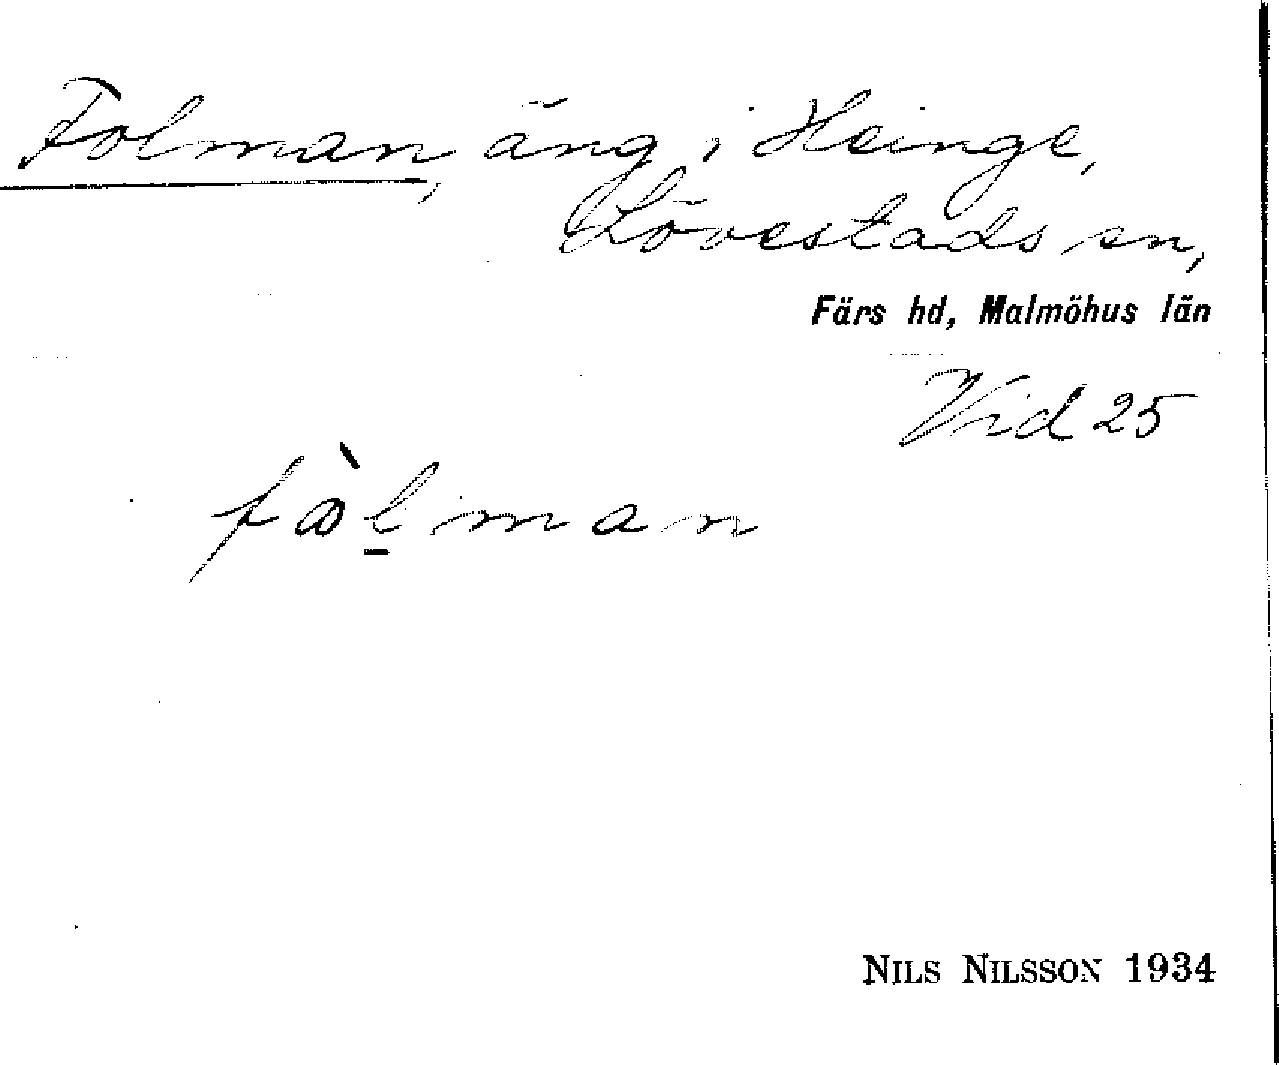 Folman, äng i Heinge,
Lövestads sn,
Färs hd, Malmöhus län
Vid 25
NILS NILSSON 1934